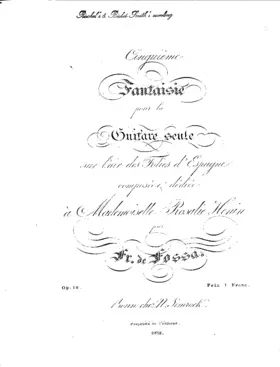 Cinquième
Fantaisie
pour la
Guitare seule
sur l'air des Folies d'Espagne
composée & dédiée
à Mademoiselle Rosalie Henin
par
Fr. de Fossa.
Op: 12.
Prix 1 Franc.
Bonn chez N. Simrock.
Propriété de l'éditeur.